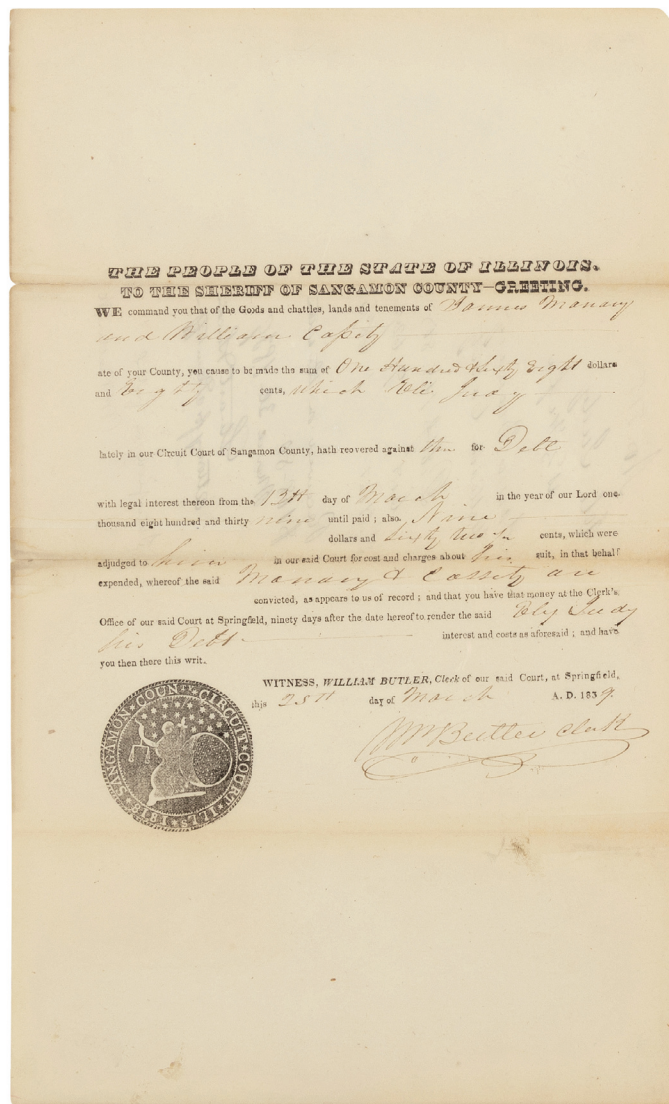 THE PEOPLE OF THE STATE OF ILLINOIS.
TO THE SHERIFF OF SANGAMON COUNTY—GREETING.
WE command you that of the Goods and chattles, lands and tenements of James Manary
and William Caſsity
ate of your County, you cause to be made the sum of One Hundred & Sixty Eight dollars
and Eighty cents, which Eli Judy
lately in our Circuit Court of Sangamon County, hath reovered against them for Debt
with legal interest thereon from the 13th day of March in the year of our Lord one
thousand eight hundred and thirty nine until paid; also, Nine
dollars and Sixty two ½ cents, which were
adjudged to him in our said Court for cost and charges about his suit, in that behalf
expended, whereof the said Manary & Cassity are
convicted, as appears to us of record; and that you have that money at the Clerk's
Office of our said Court at Springfield, ninety days after the date hereof to render the said Ely Judy
his Debt interest and costs as aforesaid; and have
you then there this writ.
WITNESS, WILLIAM BUTLER, Cleck of our said Court, at Springfield,
this 25th day of March A. D. 1839.
Wm Butler Clerk
SANGAMON · COUNTY · CIRCUIT · COURT · ILLS · 1819